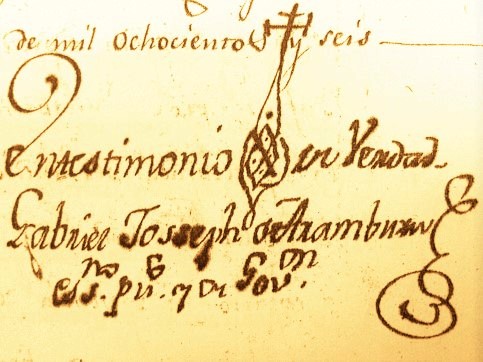 de mil ochocientos y seis
Entestimonio de Verdad
Gabriel Josseph de Aramburu
essno. puco. y de Govon.